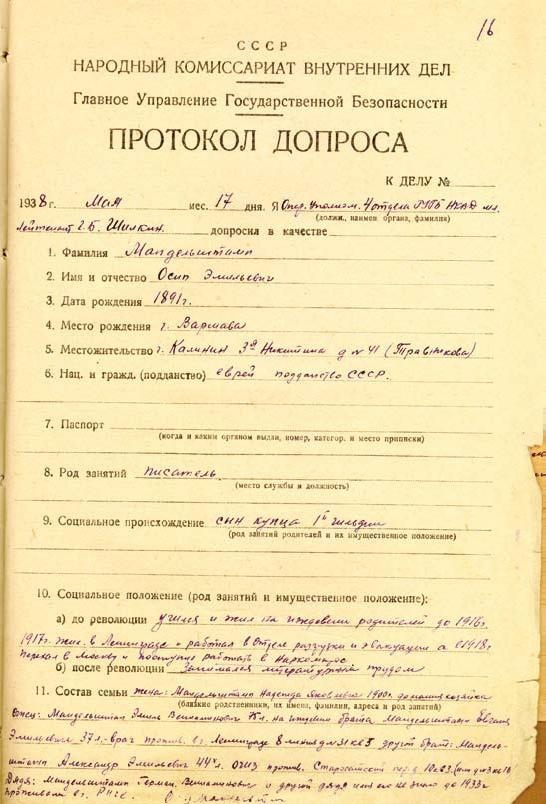 16
СССР
НАРОДНЫЙ КОМИССАРИАТ ВНУТРЕННИХ ДЕЛ
Главное Управление Государственной Безопасности
ПРОТОКОЛ ДОПРОСА
К ДЕЛУ №
1938 г. Мая мес. 17 дня. Я Опер. Уполном. 4 отдела ГУГБ НКВД мл.
(должн., наимен органа, фамилия)
лейтенант Г.Б. Шилкин допросил в качестве
1. Фамилия Мандельштам
2. Имя и отчество Осип Эмильевич
3. Дата рождения 1891 г.
4. Место рождения г. Варшава
5. Местожительство г. Калинин 3я Никитина д № 41 (Травникова)
6. Нац. и гражд. (подданство) еврей подданство СССР.
7. Паспорт
(когда и каким органом выдан, номер, категор. и место приписки)
8. Род занятий писатель
(место службы и должность)
9. Социальное происхождение сын купца 1й гильдии
(род занятий родителей и их имущественное положение)
10. Социальное положение (род занятий и имущественное положение):
а) до революции учился и жил на иждивении родителей до 1916 г.
1917 г. жил в Ленинграде и работал в отделе разгрузки и эвакуации а с 1918 г.
переехал в Москву и поступил работать в Наркомпрос
б) после революции занимался литературным трудом
11. Состав семьи жена: Мандельштам Надежда Яковлевна 1900 г. домохозяйка
(близкие родственники, их имена, фамилии, адреса и род занятий)
отец: Мандельштам Эмиль Вениаминович на иждивении брата Мандельштама Евгения
Эмильевича 37 л. - врач прожив. в г. Ленинграде 8 линия д № 31 кв 5 другой брат: Мандель-
штам Александр Эмильевич 44 г. ОГИЗ прожив. Старосадский пер д 10 кв 3
Дядя: Мандельштам Герман Вениаминович и другой дядя имя его не знаю до 1933 г.
проживали в г. Риге.